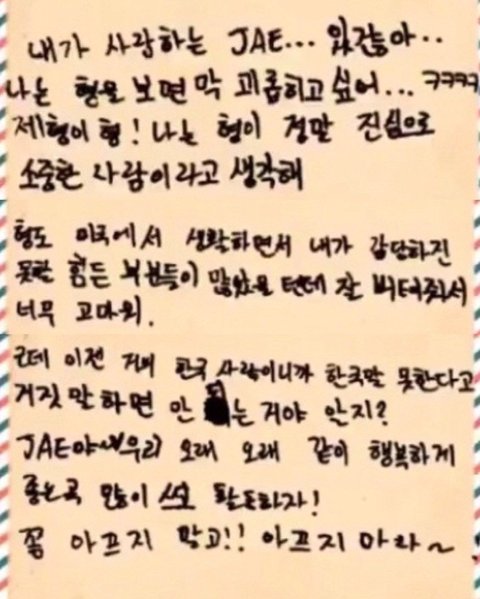 내가 사랑하는 JAE... 있잖아..
나는 형을 보면 막 괴롭히고 싶어... ㅋㅋㅋㅋ
제형이 형! 나는 형이 정말 진심으로
소중한 사람이라고 생각해
형도 미국에서 생활하면서 내가 감당하진
못할 힘든 부분들이 많았을 텐데 잘 버텨줘서
너무 고마워.
근데 이젠 거의 한국 사람이니까 한국말 못한다고
거짓말하면 안 는거야 안지?
JAE야 우리 오래 오래 같이 행복하게
좋은곡 많이 써서 활동하자!
꼭 아프지 말고!! 아프지 마라~